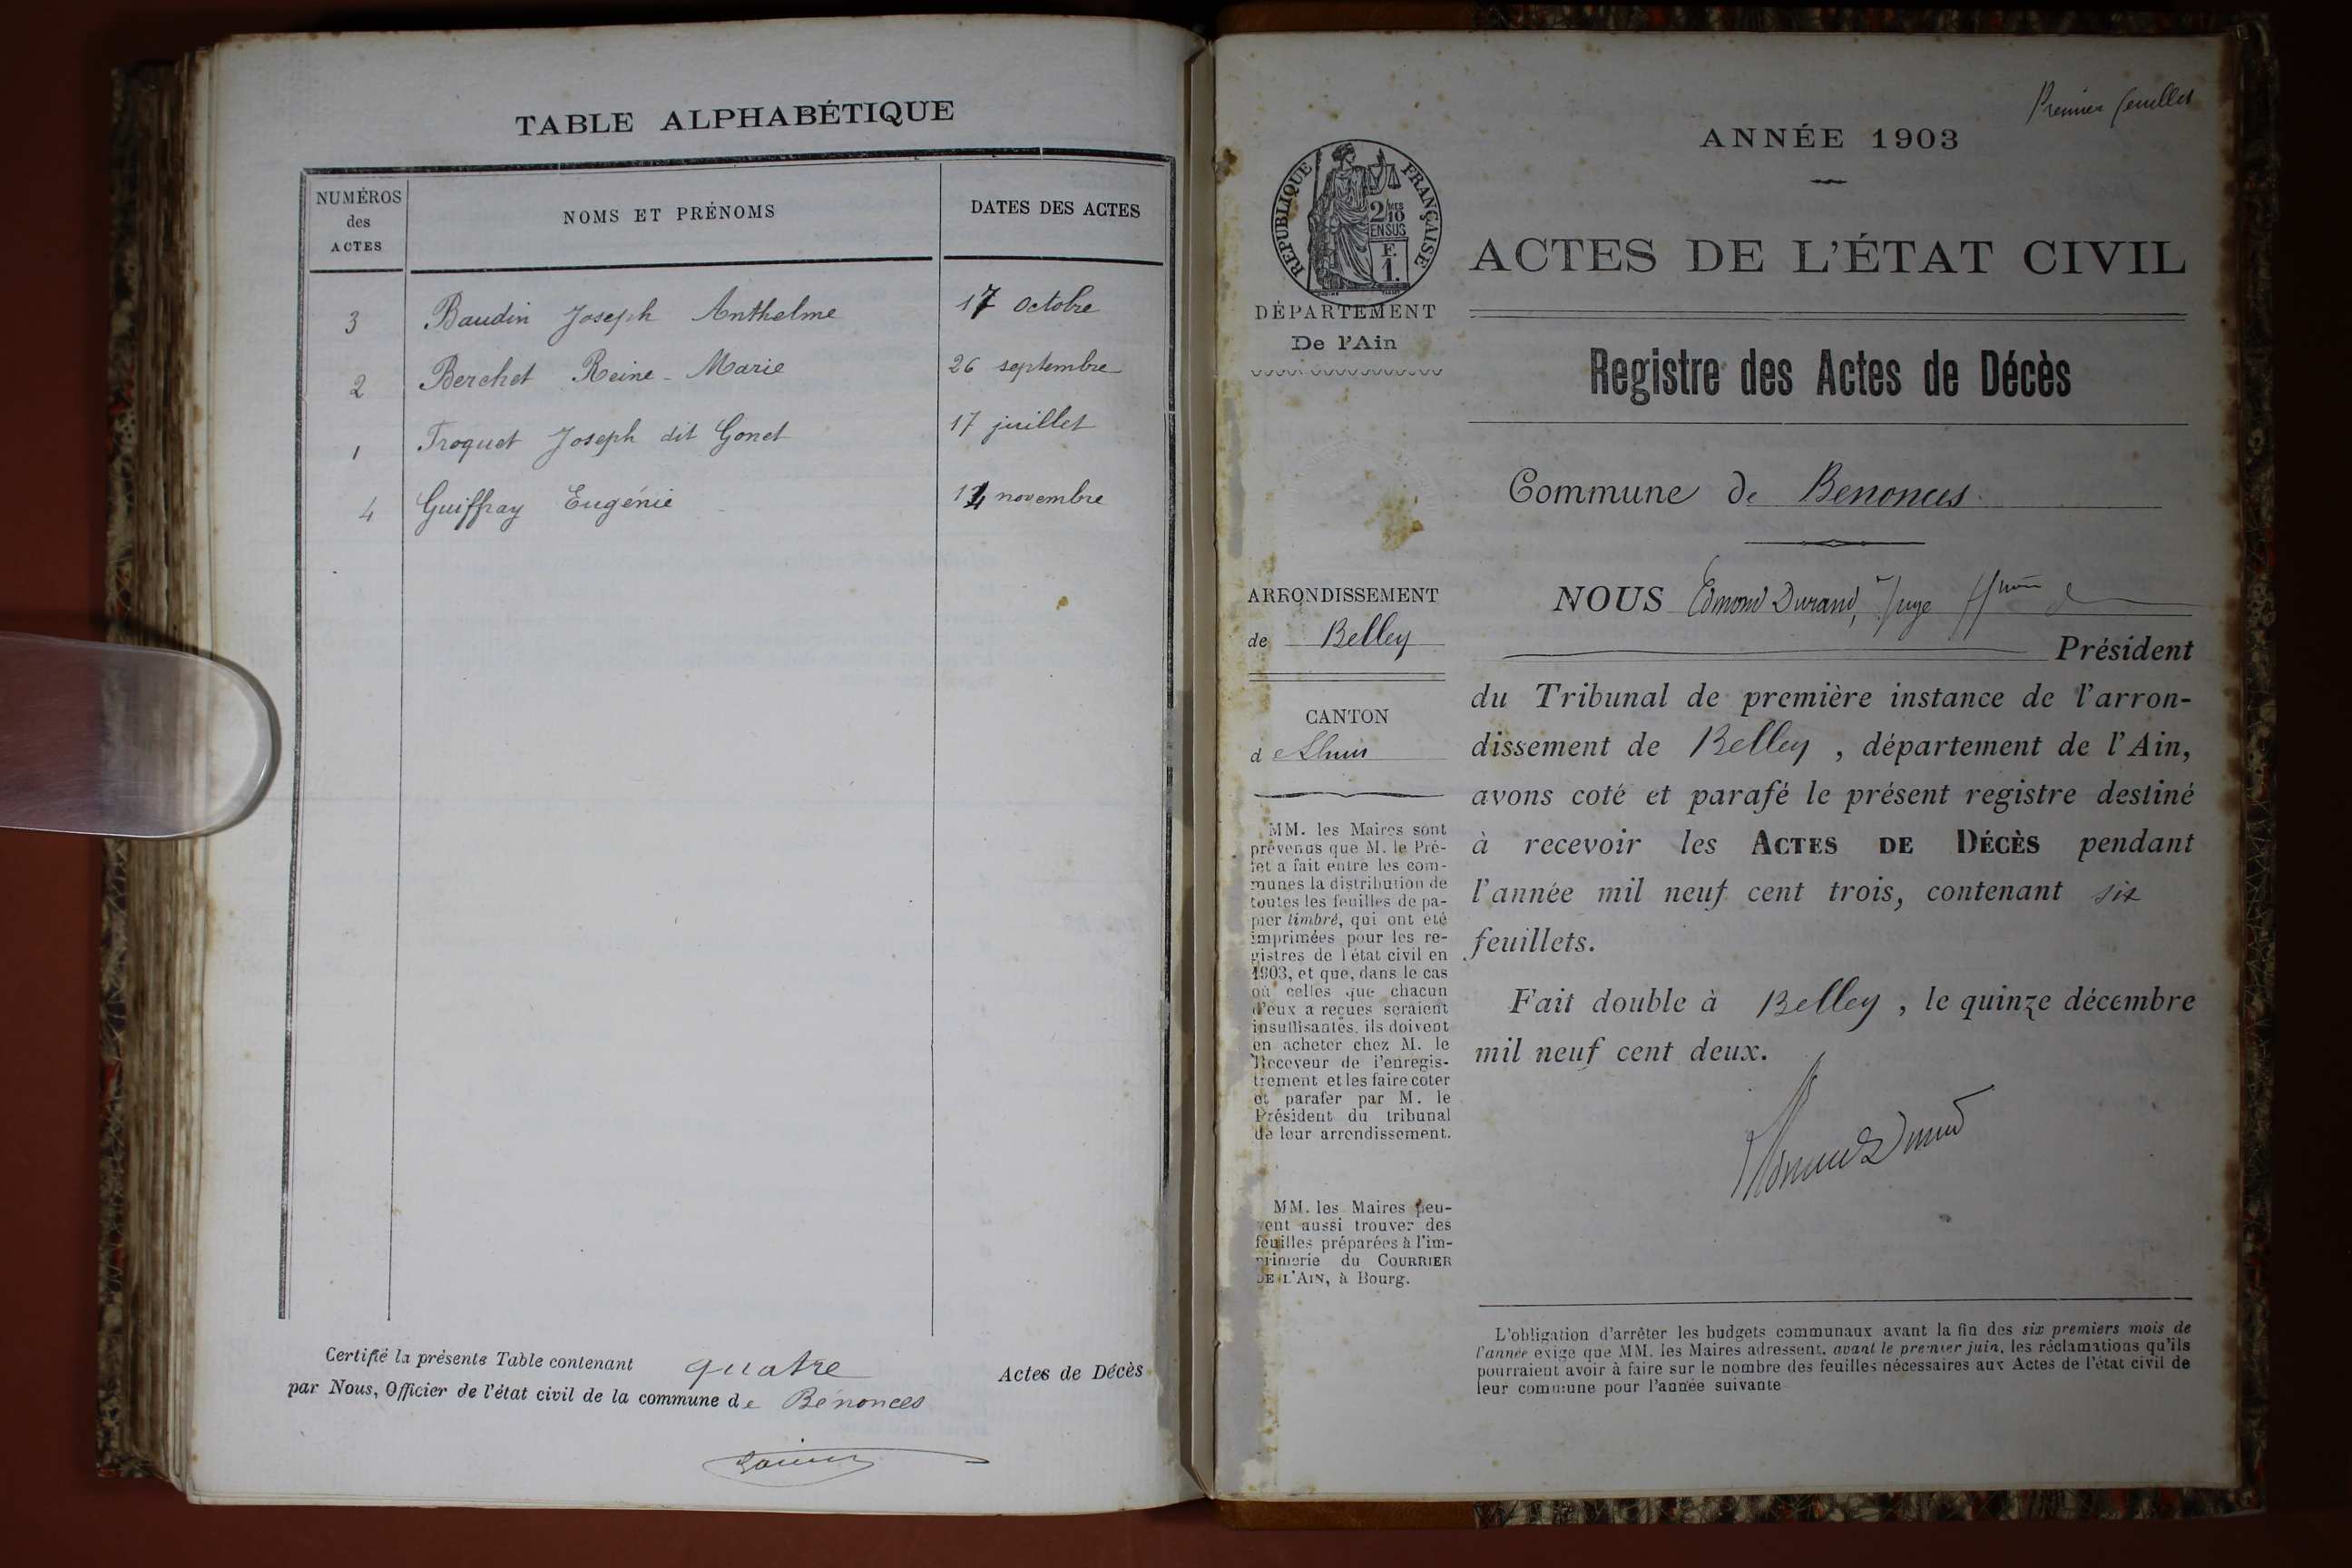 TABLE ALPHABÉTIQUE
NUMÉROS
des
ACTES
NOMS ET PRÉNOMS
DATES DES ACTES
3 Baudin Joseph Anthelme 17 octobre
2 Berchet Reine-Marie 26 septembre
1 Troquet Joseph dit Gonet 17 juillet
4 Guiffray Eugénie novembre
Certifié la présente Table contenant quatre Actes de Décès
par Nous, Officier de l'état civil de la commune de Bénonces
Premier feuillet
ANNÉE 1903
RÉPUBLIQUE FRANÇAISE
2/10MES
EN SUS
F.
1.
ACTES DE L'ÉTAT CIVIL
DÉPARTEMENT
De l'Ain
Registre des Actes de Décès
Commune de Benonces
ARRONDISSEMENT
de Belley
CANTON
d Lhuis
MM. les Maires sont
prévenus que M. le Pré-
fet a fait entre les com-
munes la distribution de
toutes les feuilles de pa-
pier timbré, qui ont été
imprimées pour les re-
gistres de l'état civil en
1903, et que, dans le cas
où celles que chacun
d'eux a reçues seraient
insuffisantes, ils doivent
en acheter chez M. le
Receveur de l'enregis-
trement et les faire coter
et parafer par M. le
Président du tribunal
de leur arrondissement.
MM. les Maires peu-
vent aussi trouver des
feuilles préparées à l'im-
primerie du COURRIER
DE L'AIN, à Bourg.
NOUS Edmond Durand, Juge
Président
du Tribunal de première instance de l'arron-
dissement de Belley, département de l'Ain,
avons coté et parafé le présent registre destiné
à recevoir les ACTES DE DÉCÈS pendant
l'année mil neuf cent trois, contenant six
feuillets.
Fait double à Belley, le quinze décembre
mil neuf cent deux.
Edmond Durand
L'obligation d'arrêter les budgets communaux avant la fin des six premiers mois de
l'année exige que MM. les Maires adressent, avant le premier juin, les réclamations qu'ils
pourraient avoir à faire sur le nombre des feuilles nécessaires aux Actes de l'état civil de
leur commune pour l'année suivante